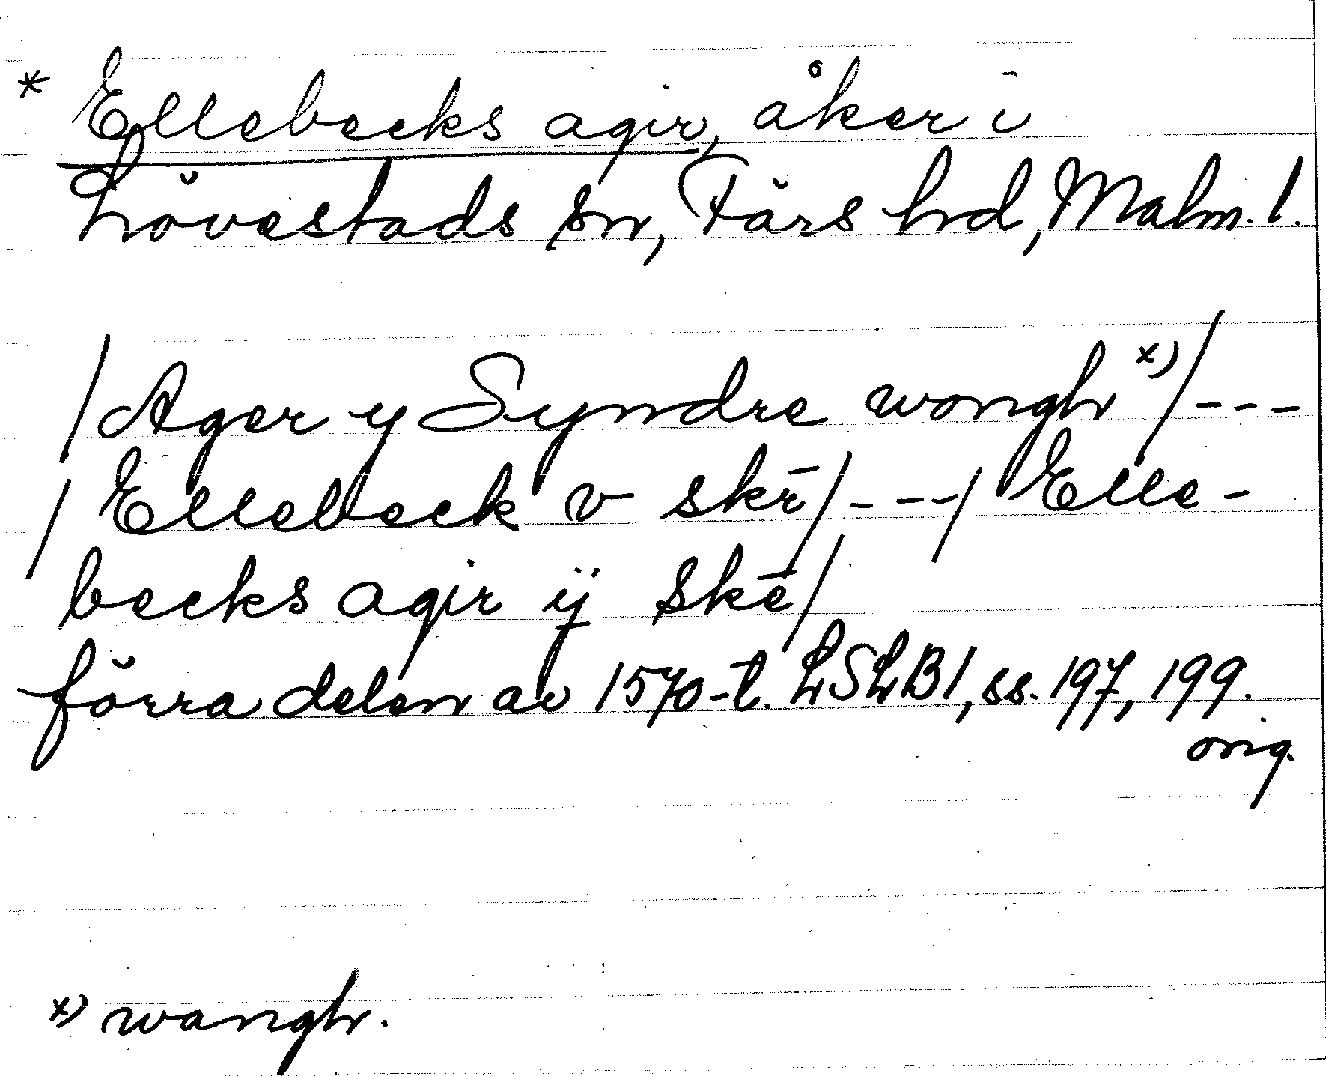 * Ellebecks agir, åker i
Lövestads sn, Färs hd, Malm. l.
/Ager y Syndre wongh x)/---
/Ellebeck v skē/---/Elle-
becks agir ÿ skē/
förra delen av 1570-t. LSLB1, ss. 197, 199.
orig.
x) wangh.